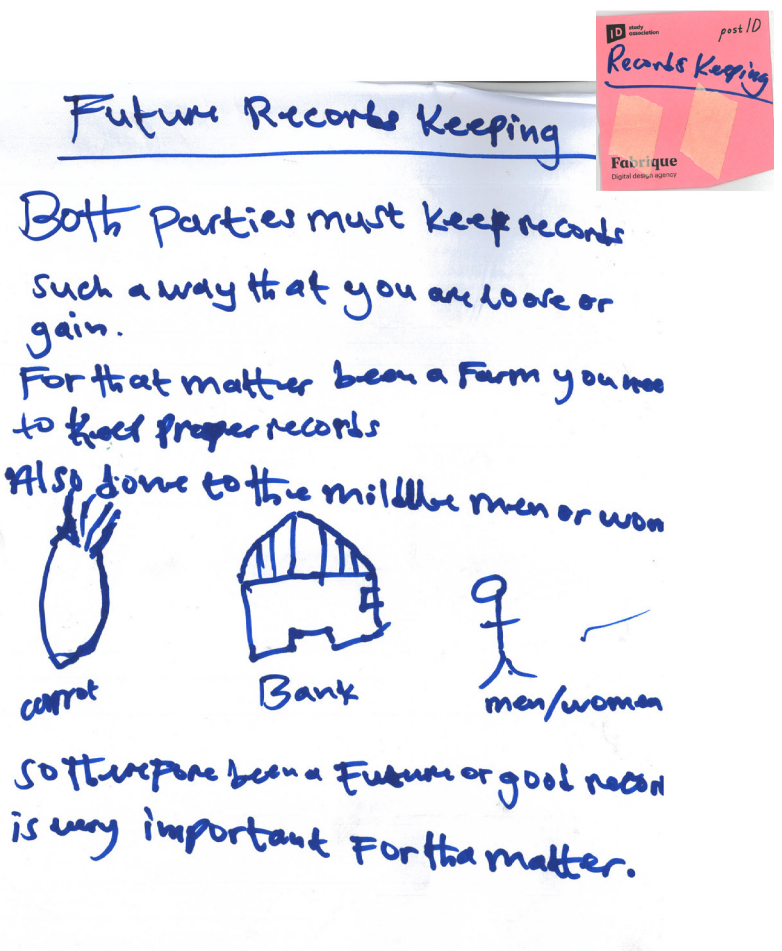 ID study association
post ID
Records Keeping
Fabrique
Digital design agency
Future Records Keeping
Both parties must keep records
such a way that you are loose or
gain.
For that matter been a Farm you nee
to keep proper records
Also done to the middle men or wom
carrot
Bank
men/women
so therefore been a Future or good recor
is very important For tha matter.